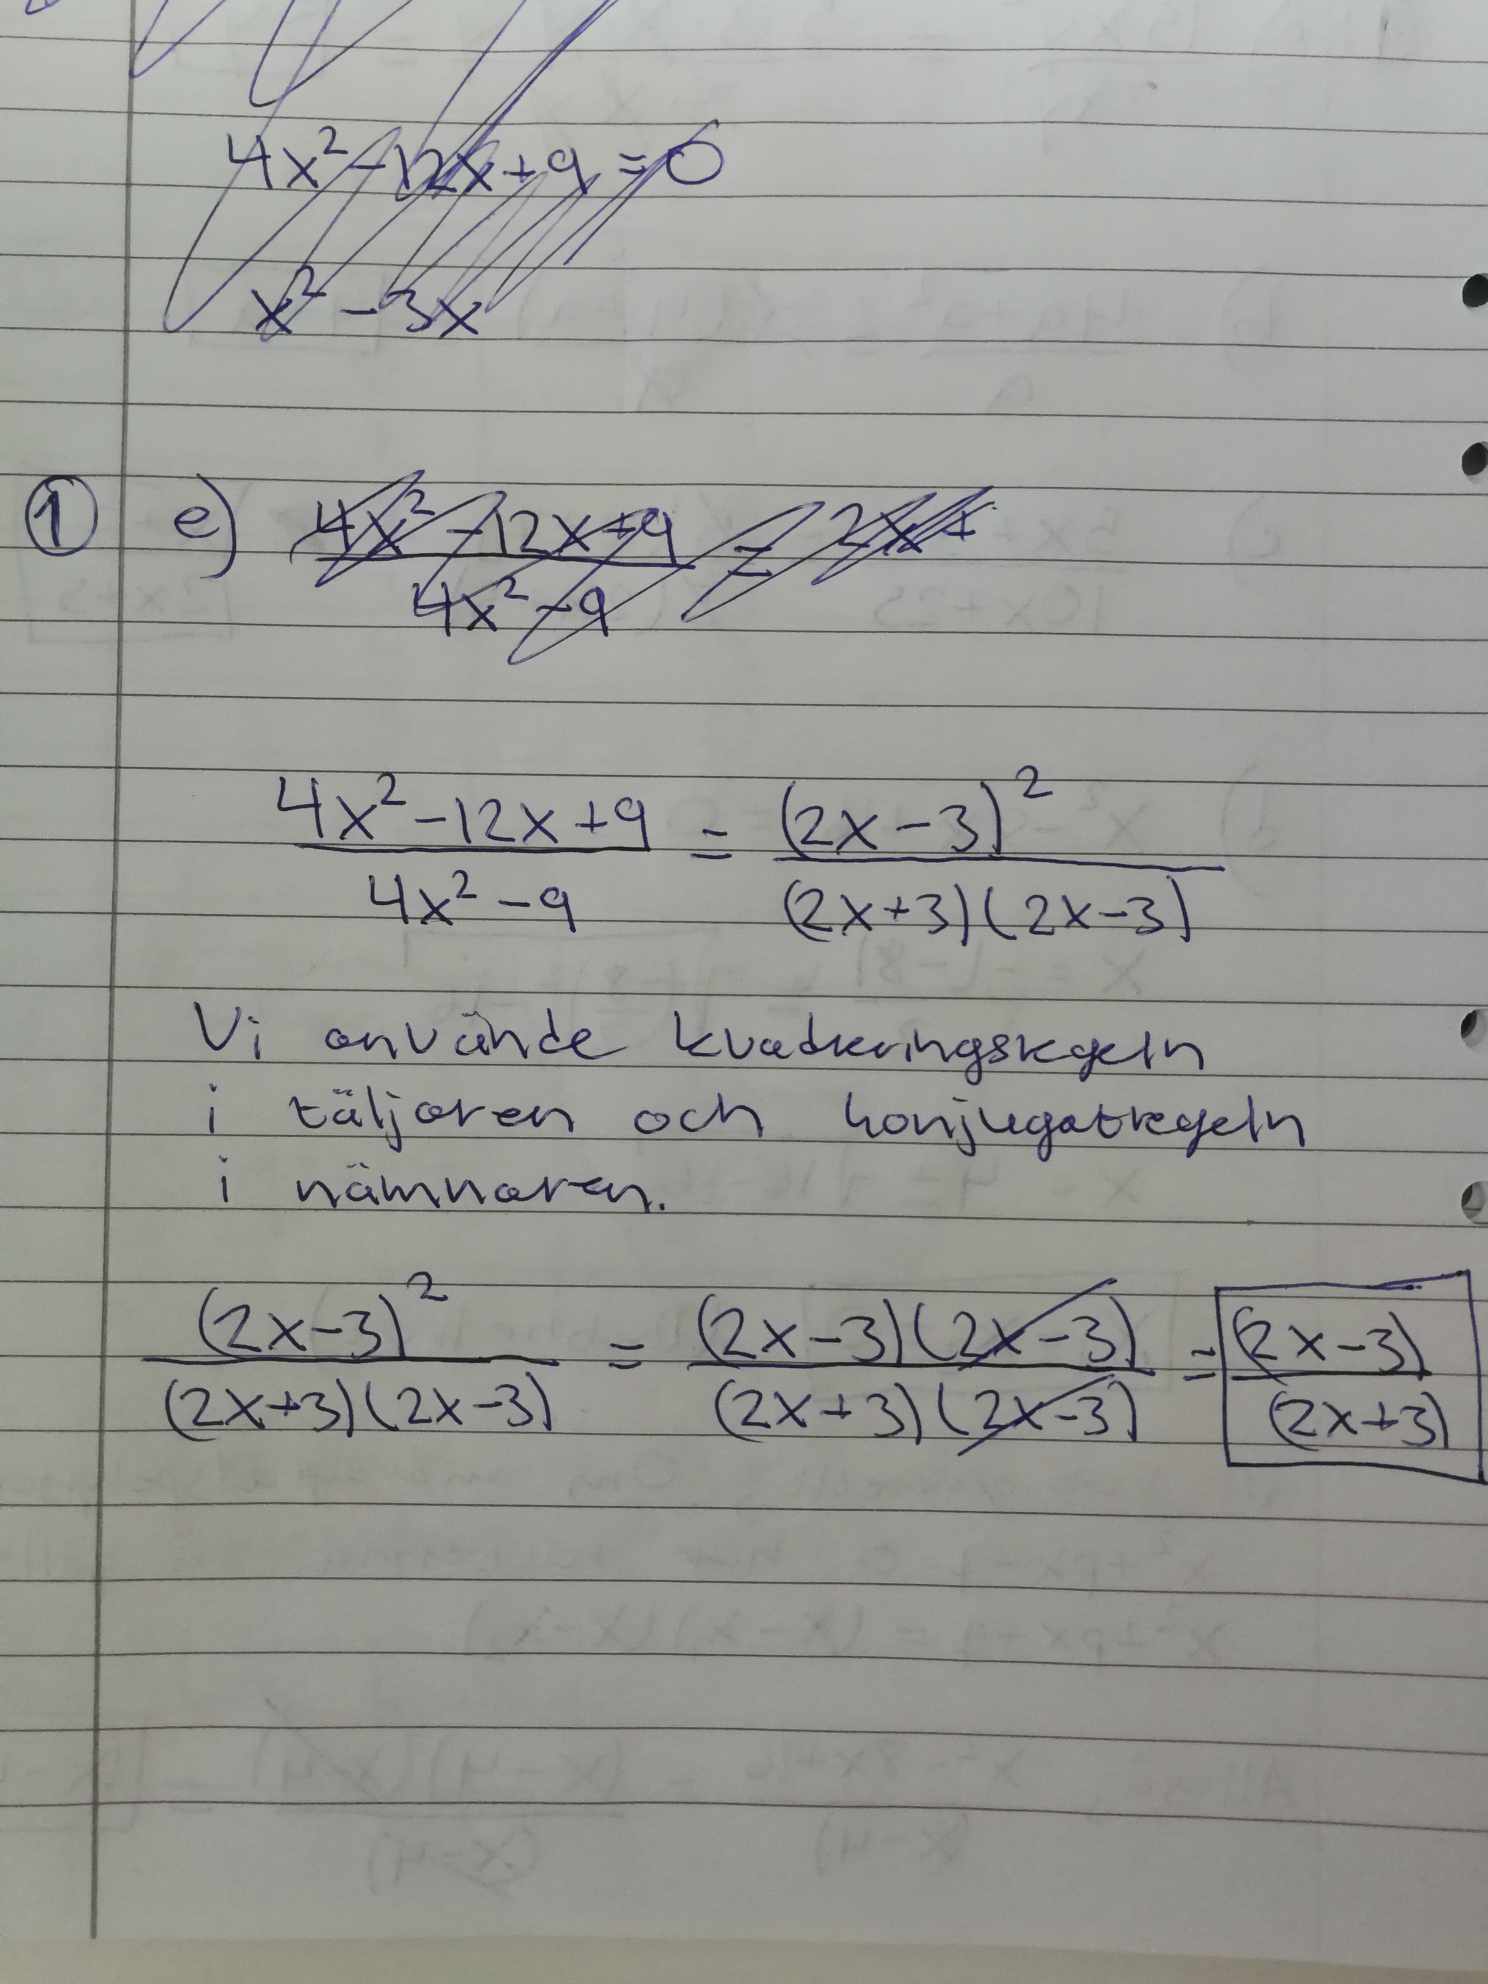 4x² - 12x + 9 = 0
x² - 3x
① e) (4x² - 12x + 9)/(4x² - 9) = 2x +
(4x² - 12x + 9)/(4x² - 9) = (2x - 3)²/((2x + 3)(2x - 3))
Vi använde kvadreringsregeln
i täljaren och konjugatregeln
i nämnaren.
(2x - 3)²/((2x + 3)(2x - 3)) = ((2x - 3)(2x - 3))/((2x + 3)(2x - 3)) = (2x - 3)/(2x + 3)